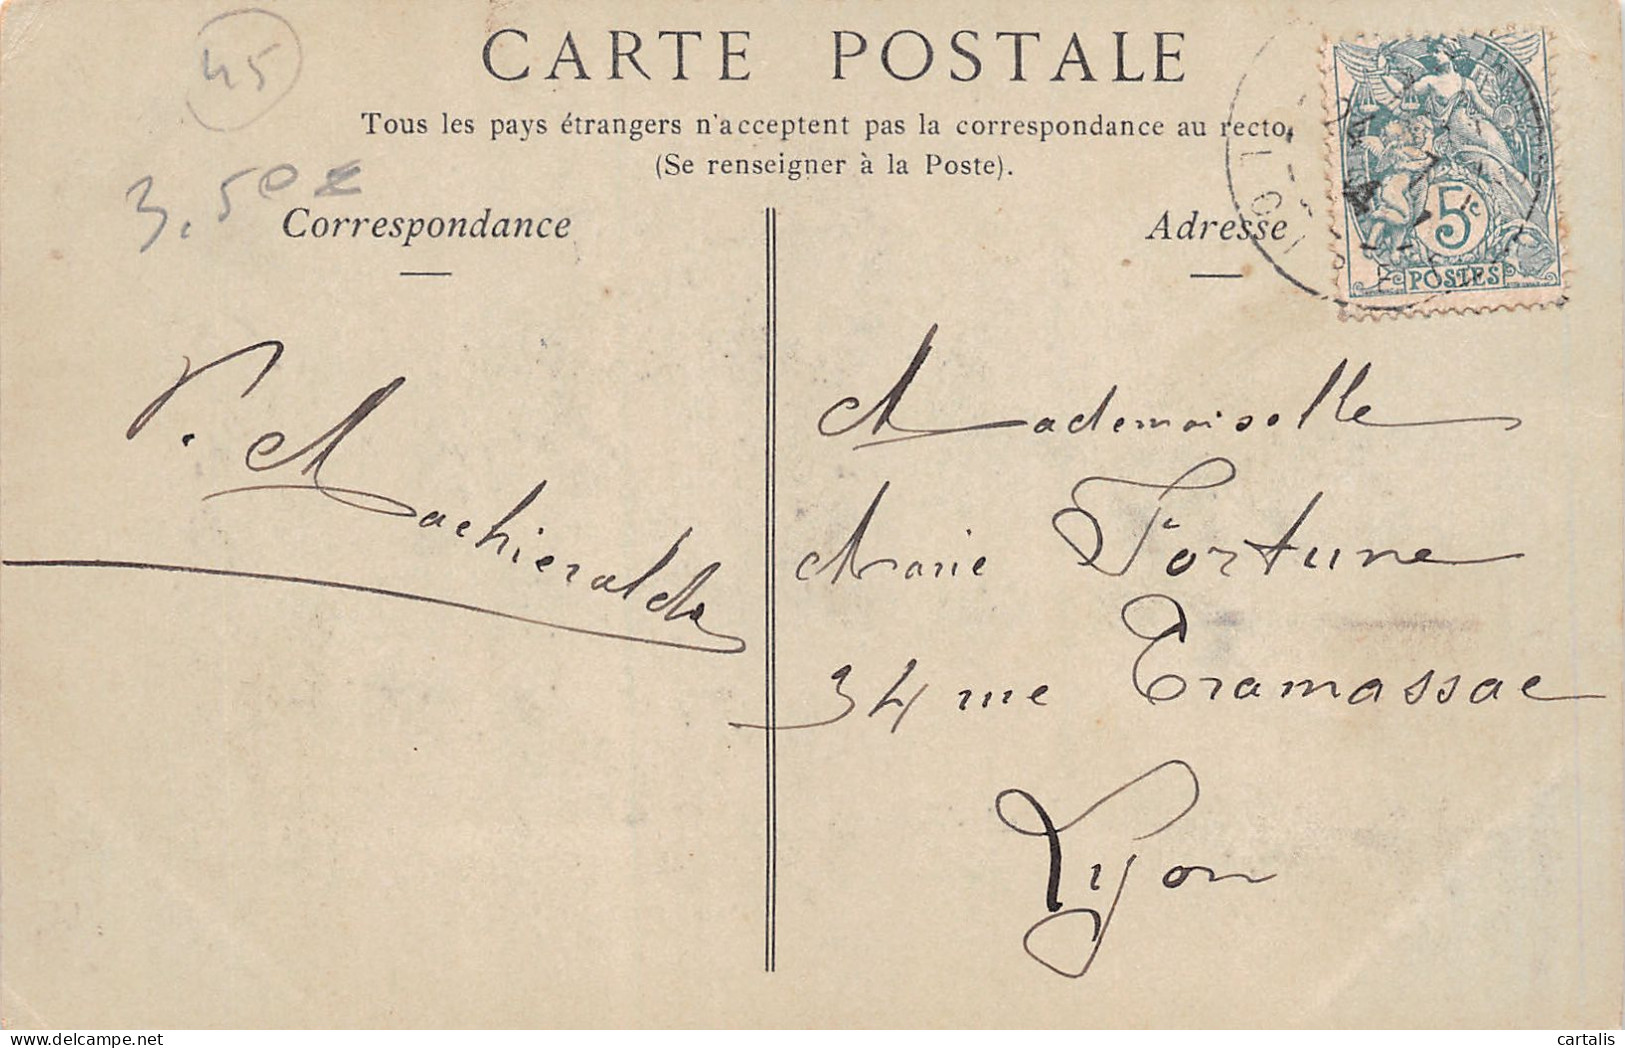 45
CARTE POSTALE
Tous les pays étrangers n'acceptent pas la correspondance au recto,
(Se renseigner à la Poste).
3.50 €
Correspondance
Adresse
5c
POSTES
Mademoiselle
Marie Fortune
34 rue Tramassac
Lyon
V. Machieraldo
cartalis